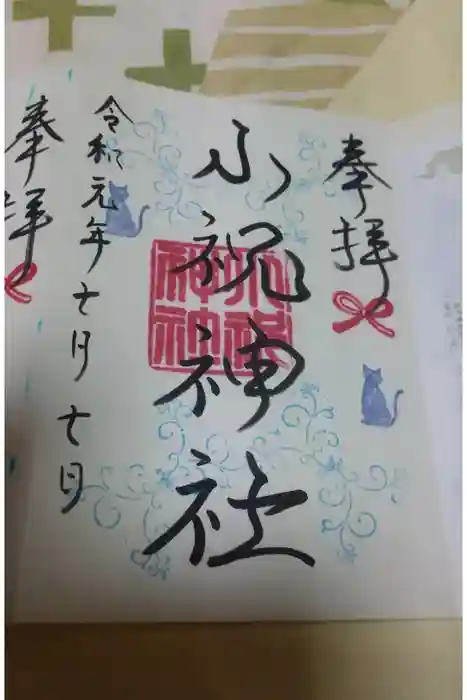 奉拝
小祝神社
小祝
神社
令和元年七月七日
奉拝